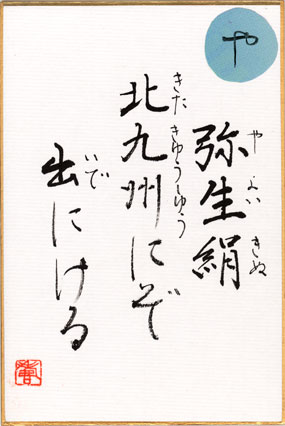 や
弥生絹
やよいきぬ
北九州にぞ
きたきゅうしゅう
出にける
いで